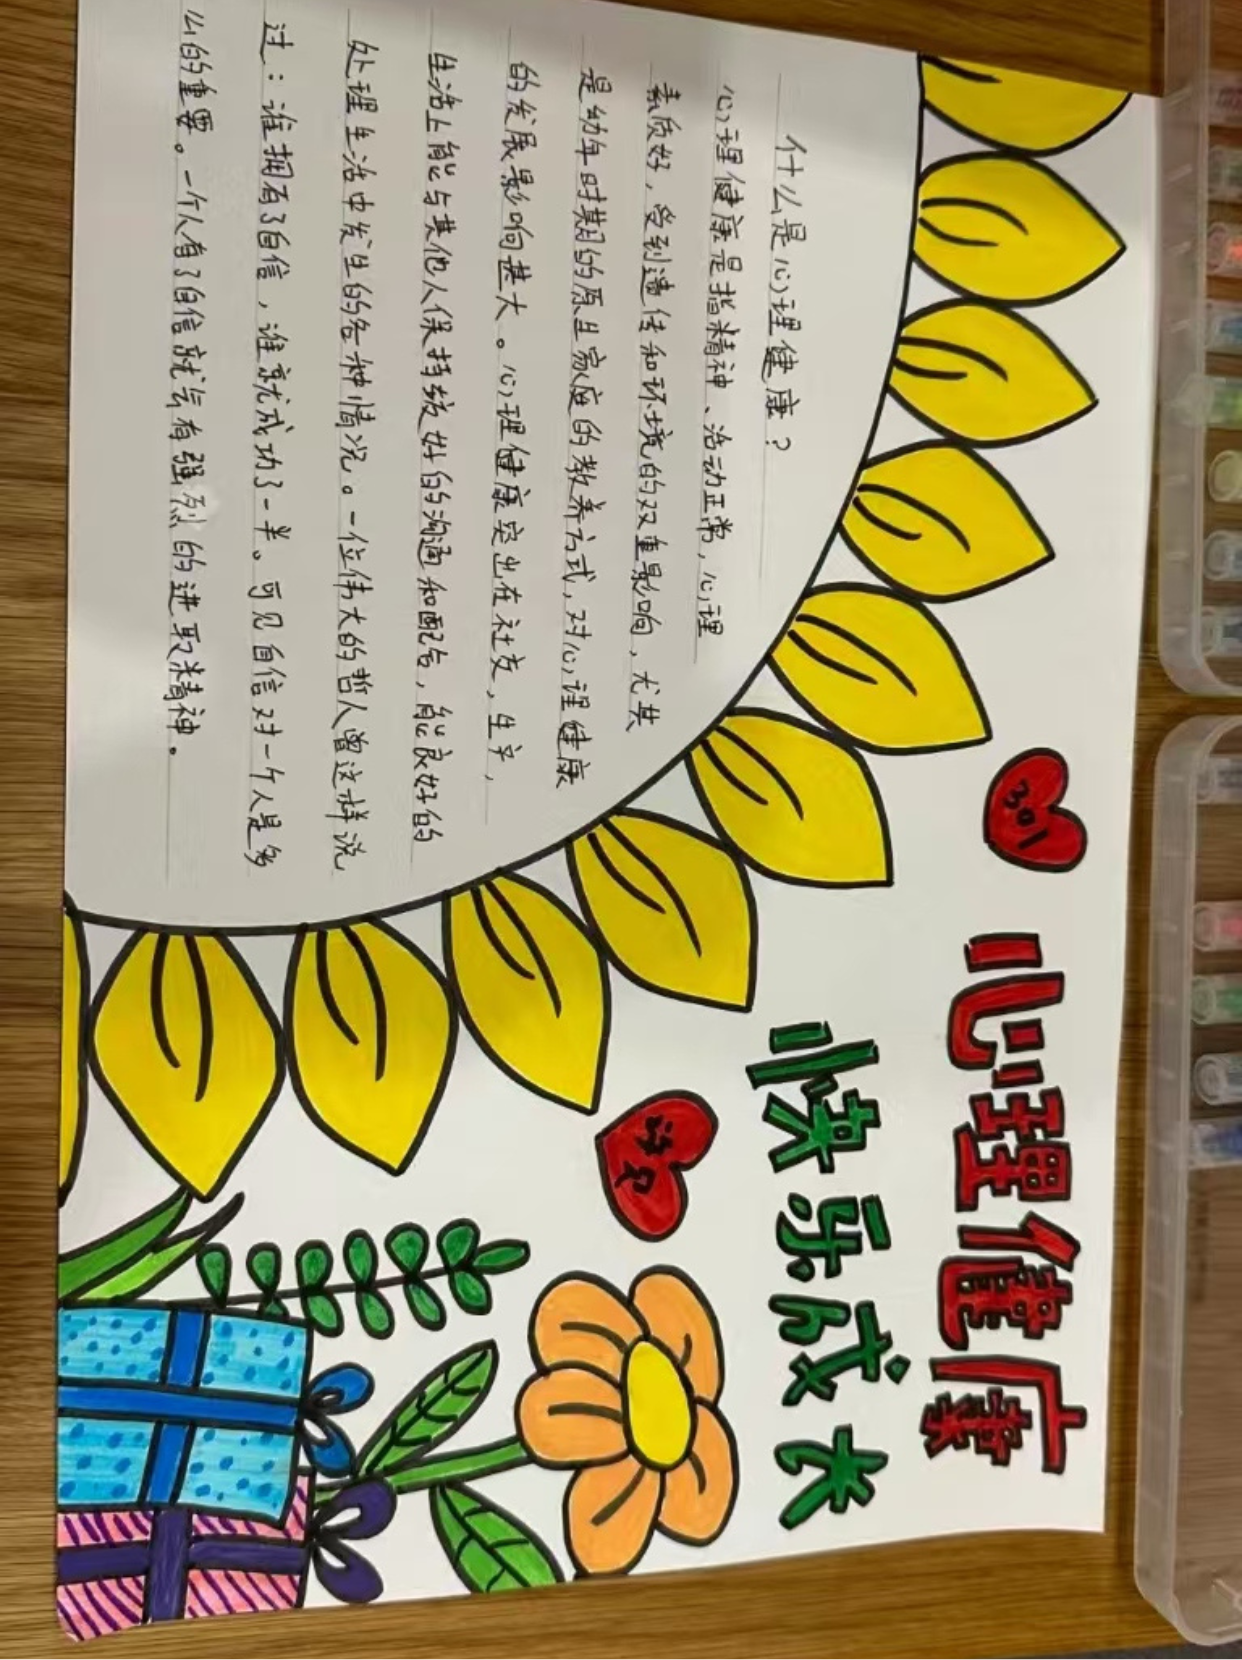 心理健康
快乐成长
301
什么是心理健康?
心理健康是指精神、活动正常,心理
素质好,受到遗传和环境的双重影响,尤其
是幼年时期的原生家庭的教养方式,对心理健康
的发展影响甚大。心理健康突出在社交,生产,
生活上能与其他人保持较好的沟通和配合,能良好的
处理生活中发生的各种情况。一位伟大的哲人曾这样说
过:谁拥有了自信,谁就成功了一半。可见自信对一个人是多
么的重要。一个人有了自信就会有强烈的进取精神。